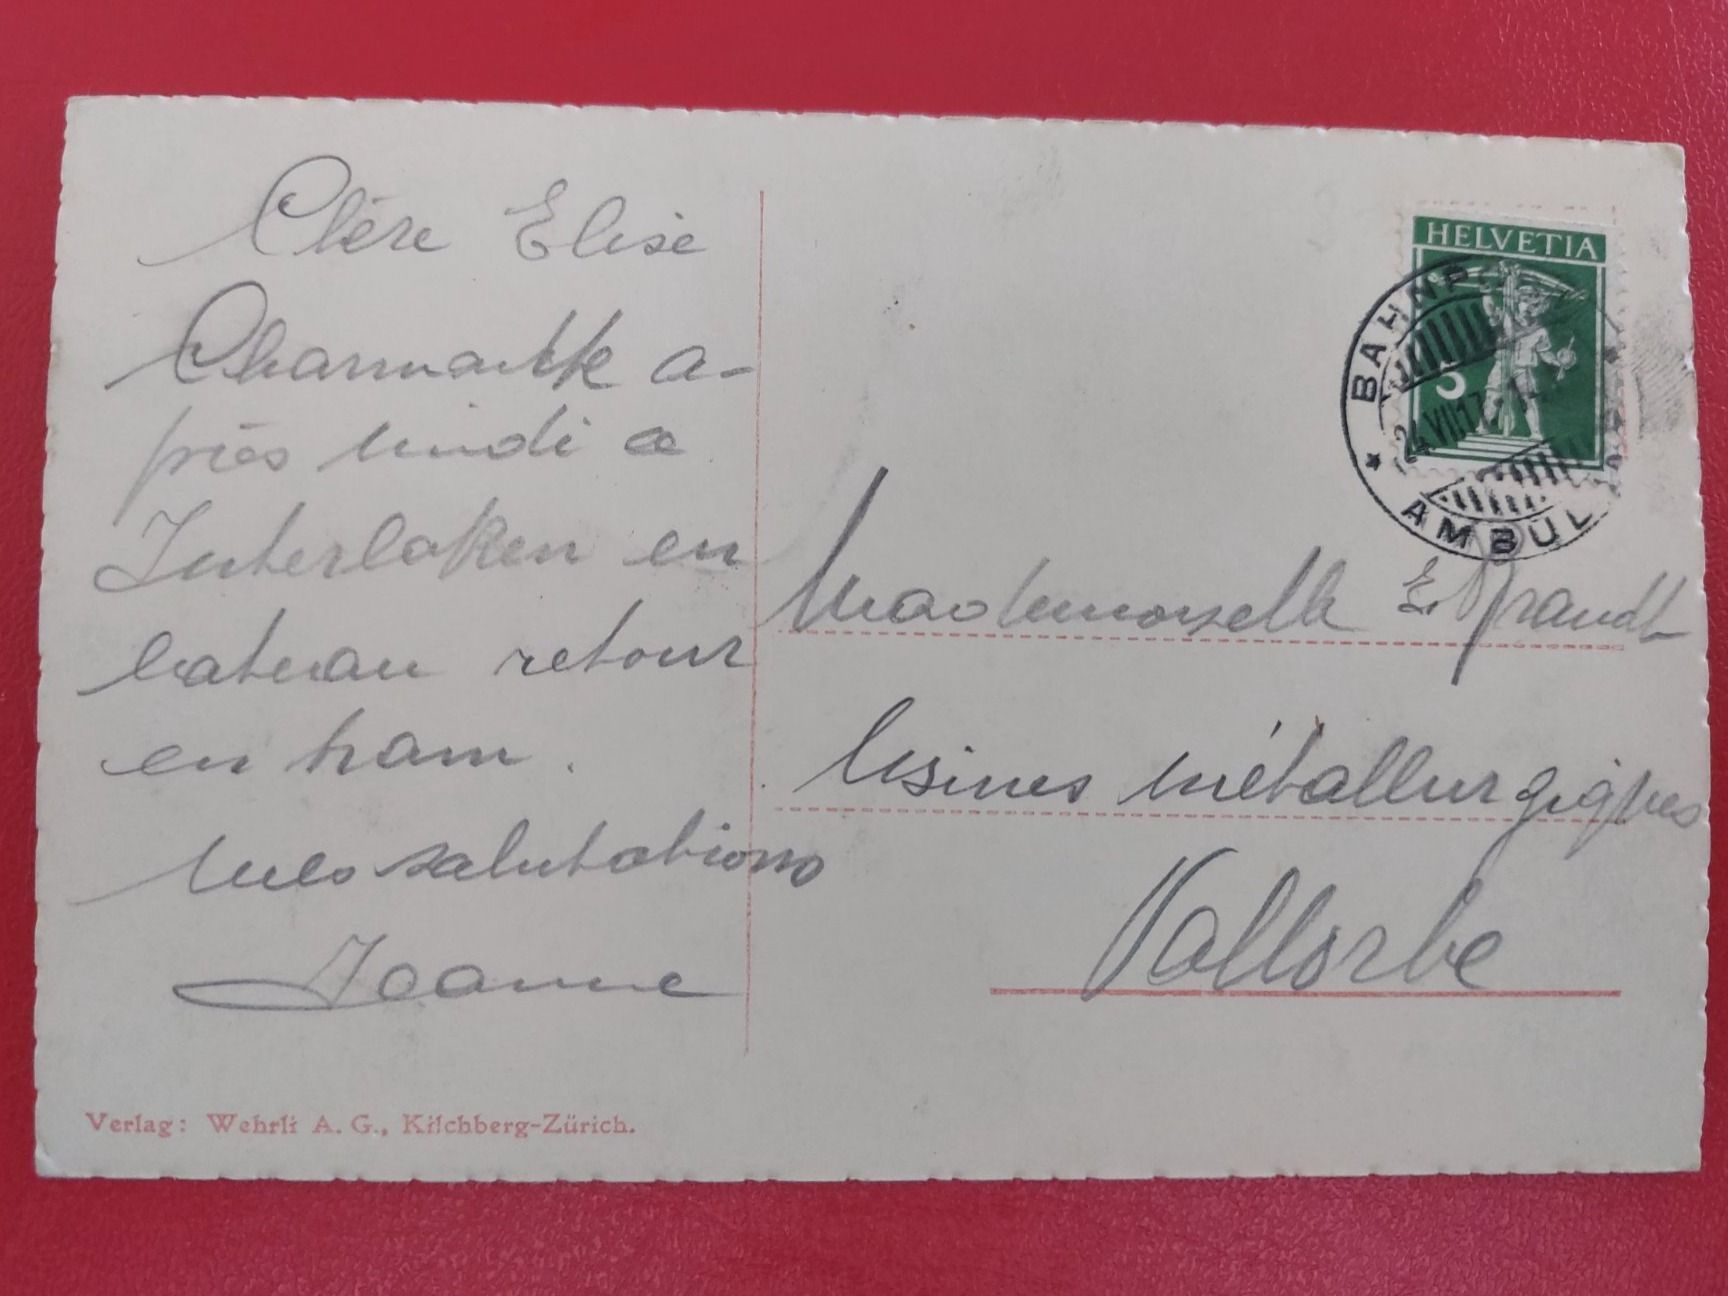 Chère Elise
Charmante a-
près midi a
Interlaken en
bateau retour
en tram.
Mes salutations
Jeanne
Verlag: Wehrli A. G., Kilchberg-Zürich.
HELVETIA
5
BAHNP
24 VIII 17
AMBUL
Mademoiselle E. Brandt
Usines métallurgiques
Vallorbe